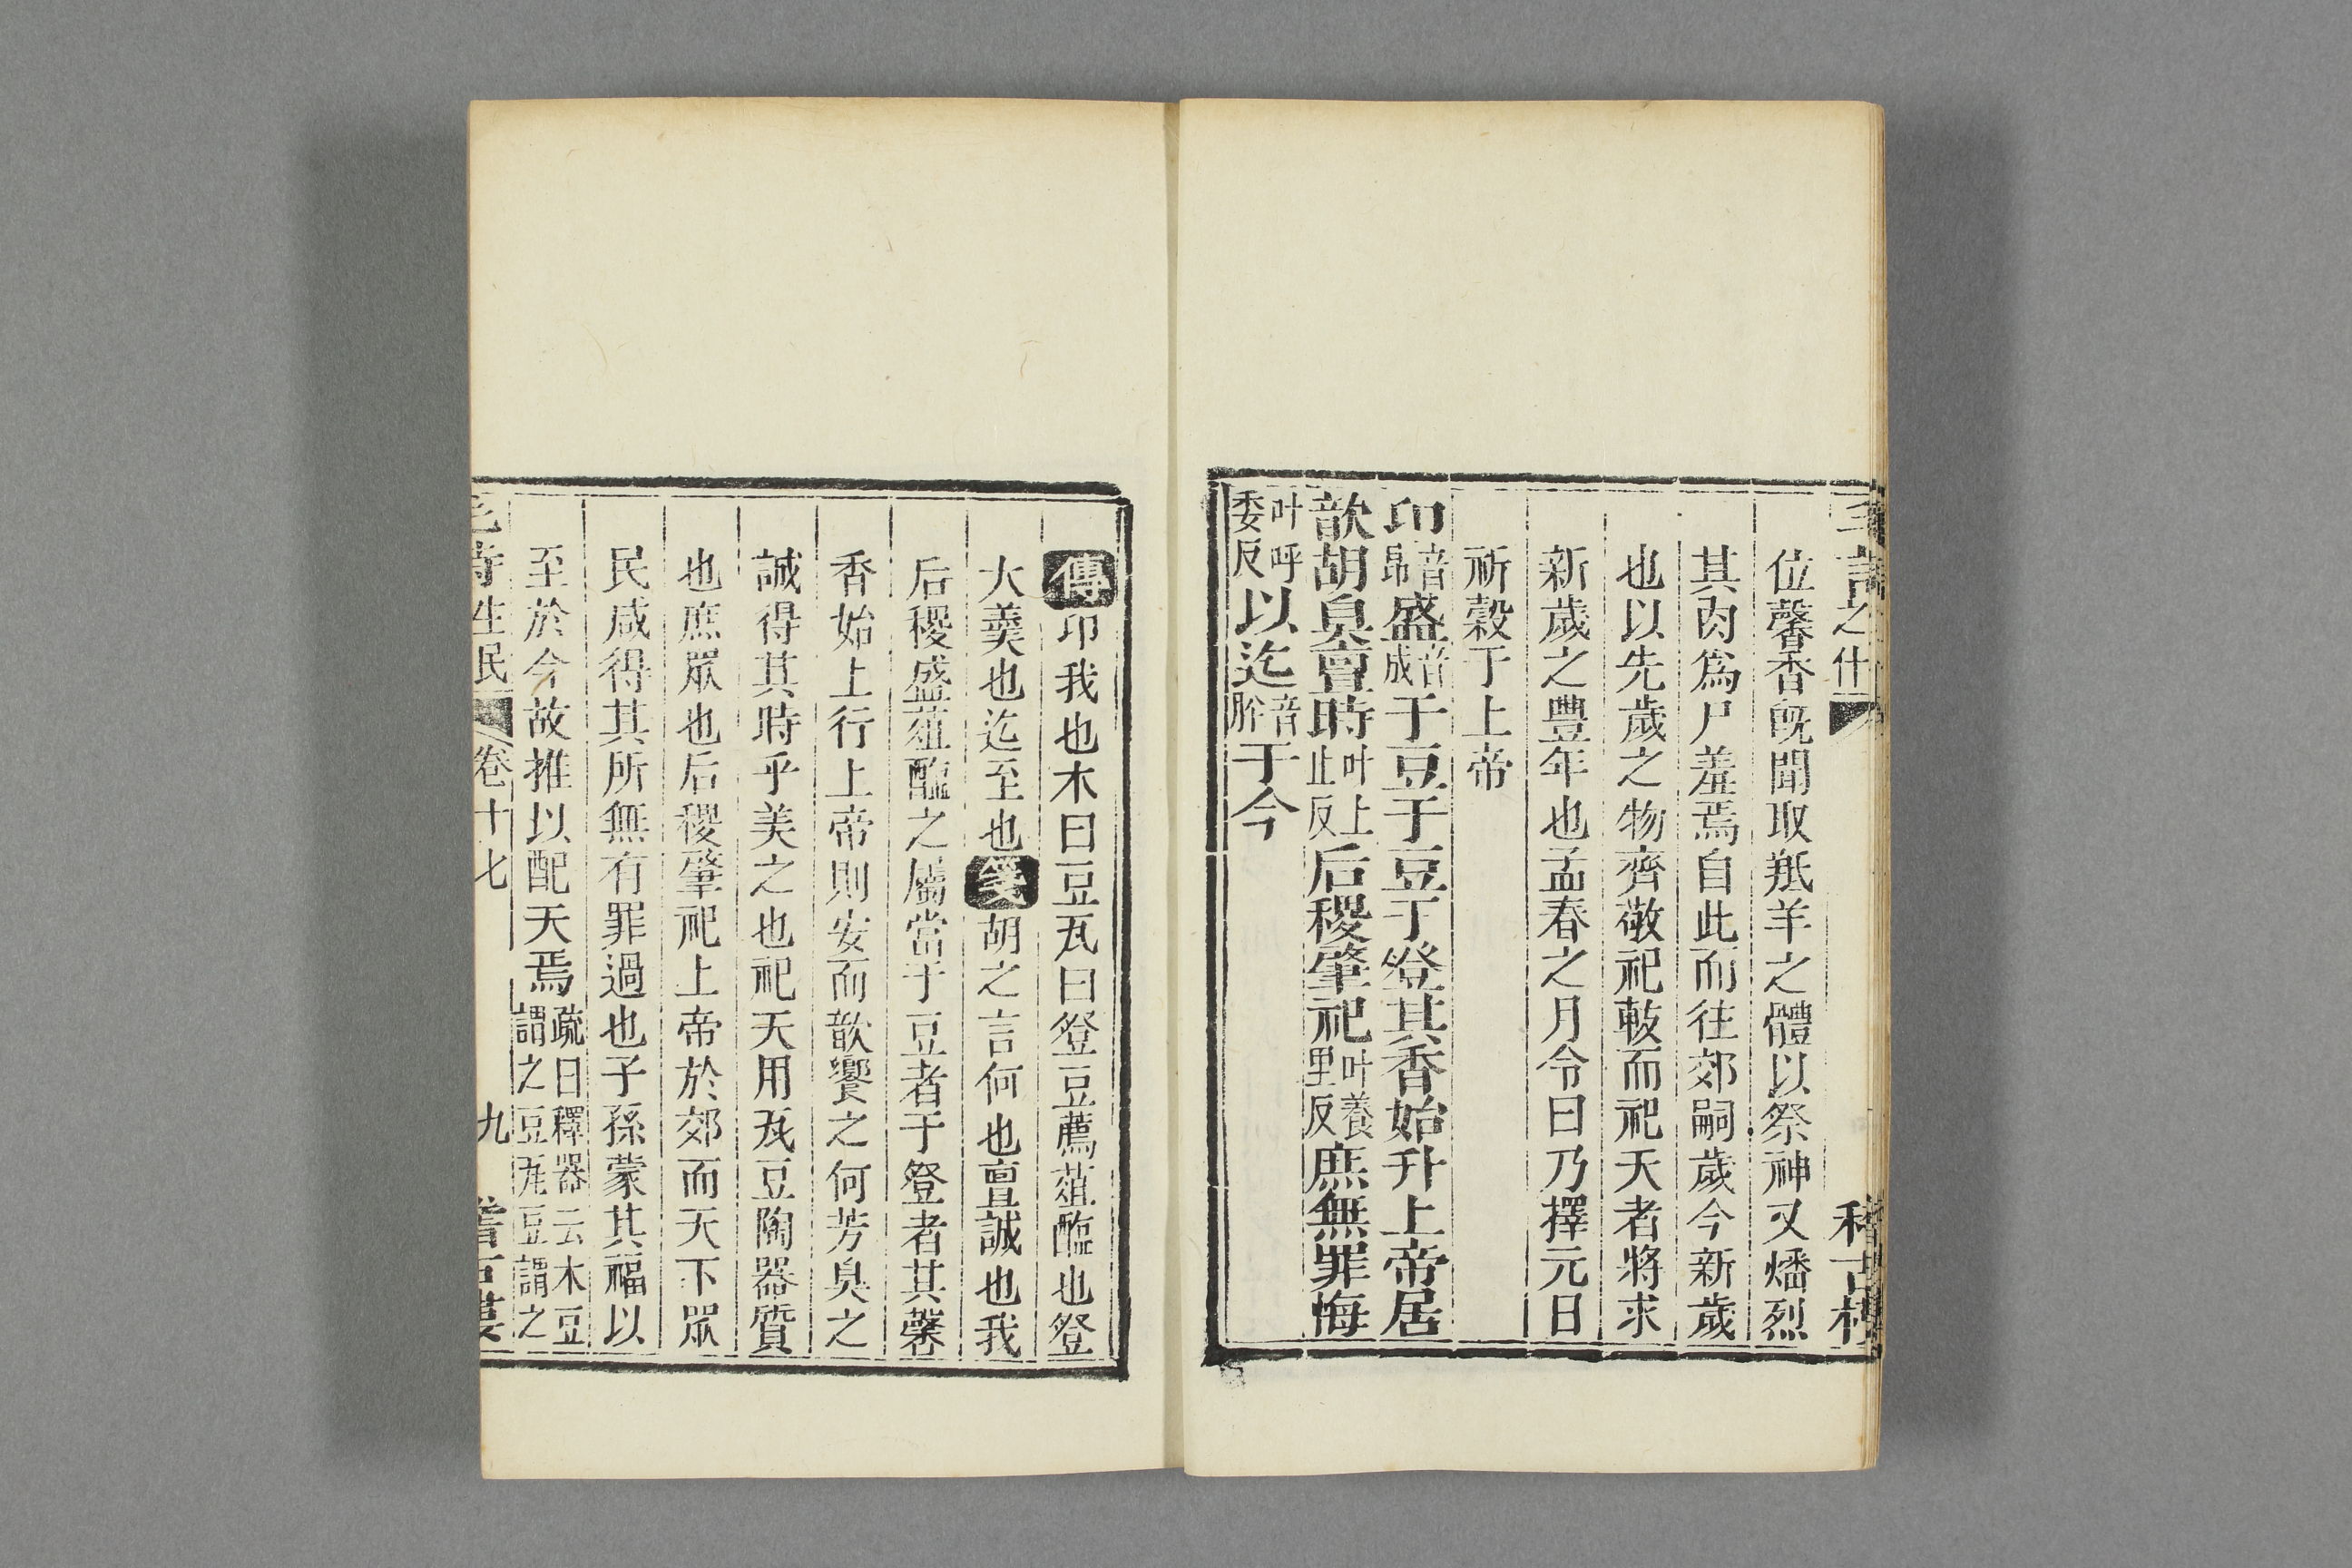 之什
稽古樓
位馨香旣聞取羝羊之體以祭神又燔烈
其肉爲尸羞焉自此而往郊嗣歲今新歲
也以先歲之物齊敬祀軷而祀天者將求
新歲之豐年也孟春之月令曰乃擇元日
祈穀于上帝
卬音昂盛音成于豆于豆于登其香始升上帝居
歆胡臭亶時叶上止反后稷肇祀叶養里反庶無罪悔
叶呼委反以迄音肸于今
傳卬我也木曰豆瓦曰登豆薦葅醢也登
大羹也迄至也箋胡之言何也亶誠也我
后稷盛葅醢之屬當于豆者于登者其馨
香始上行上帝則安而歆饗之何芳臭之
誠得其時乎美之也祀天用瓦豆陶器質
也庶眾也后稷肇祀上帝於郊而天下眾
民咸得其所無有罪過也子孫蒙其福以
至於今故推以配天焉疏曰釋器云木豆謂之豆瓦豆謂之
毛詩生民 卷十七 九 稽古樓